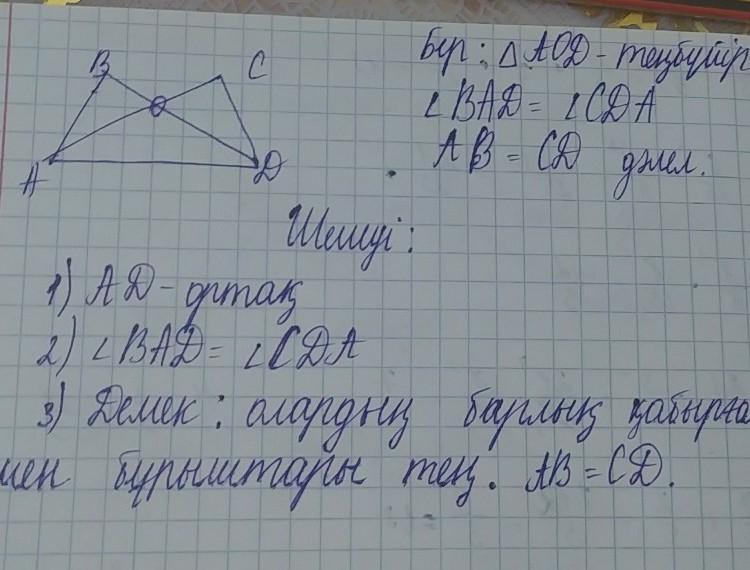 B C
O
A D
Бер: △AOD - теңбүйір
∠BAD = ∠CDA
AB = CD дәлел.
Шешуі:
1) AD - ортақ
2) ∠BAD = ∠CDA
3) Демек: олардың барлық қабырға
мен бұрыштары тең. AB = CD.